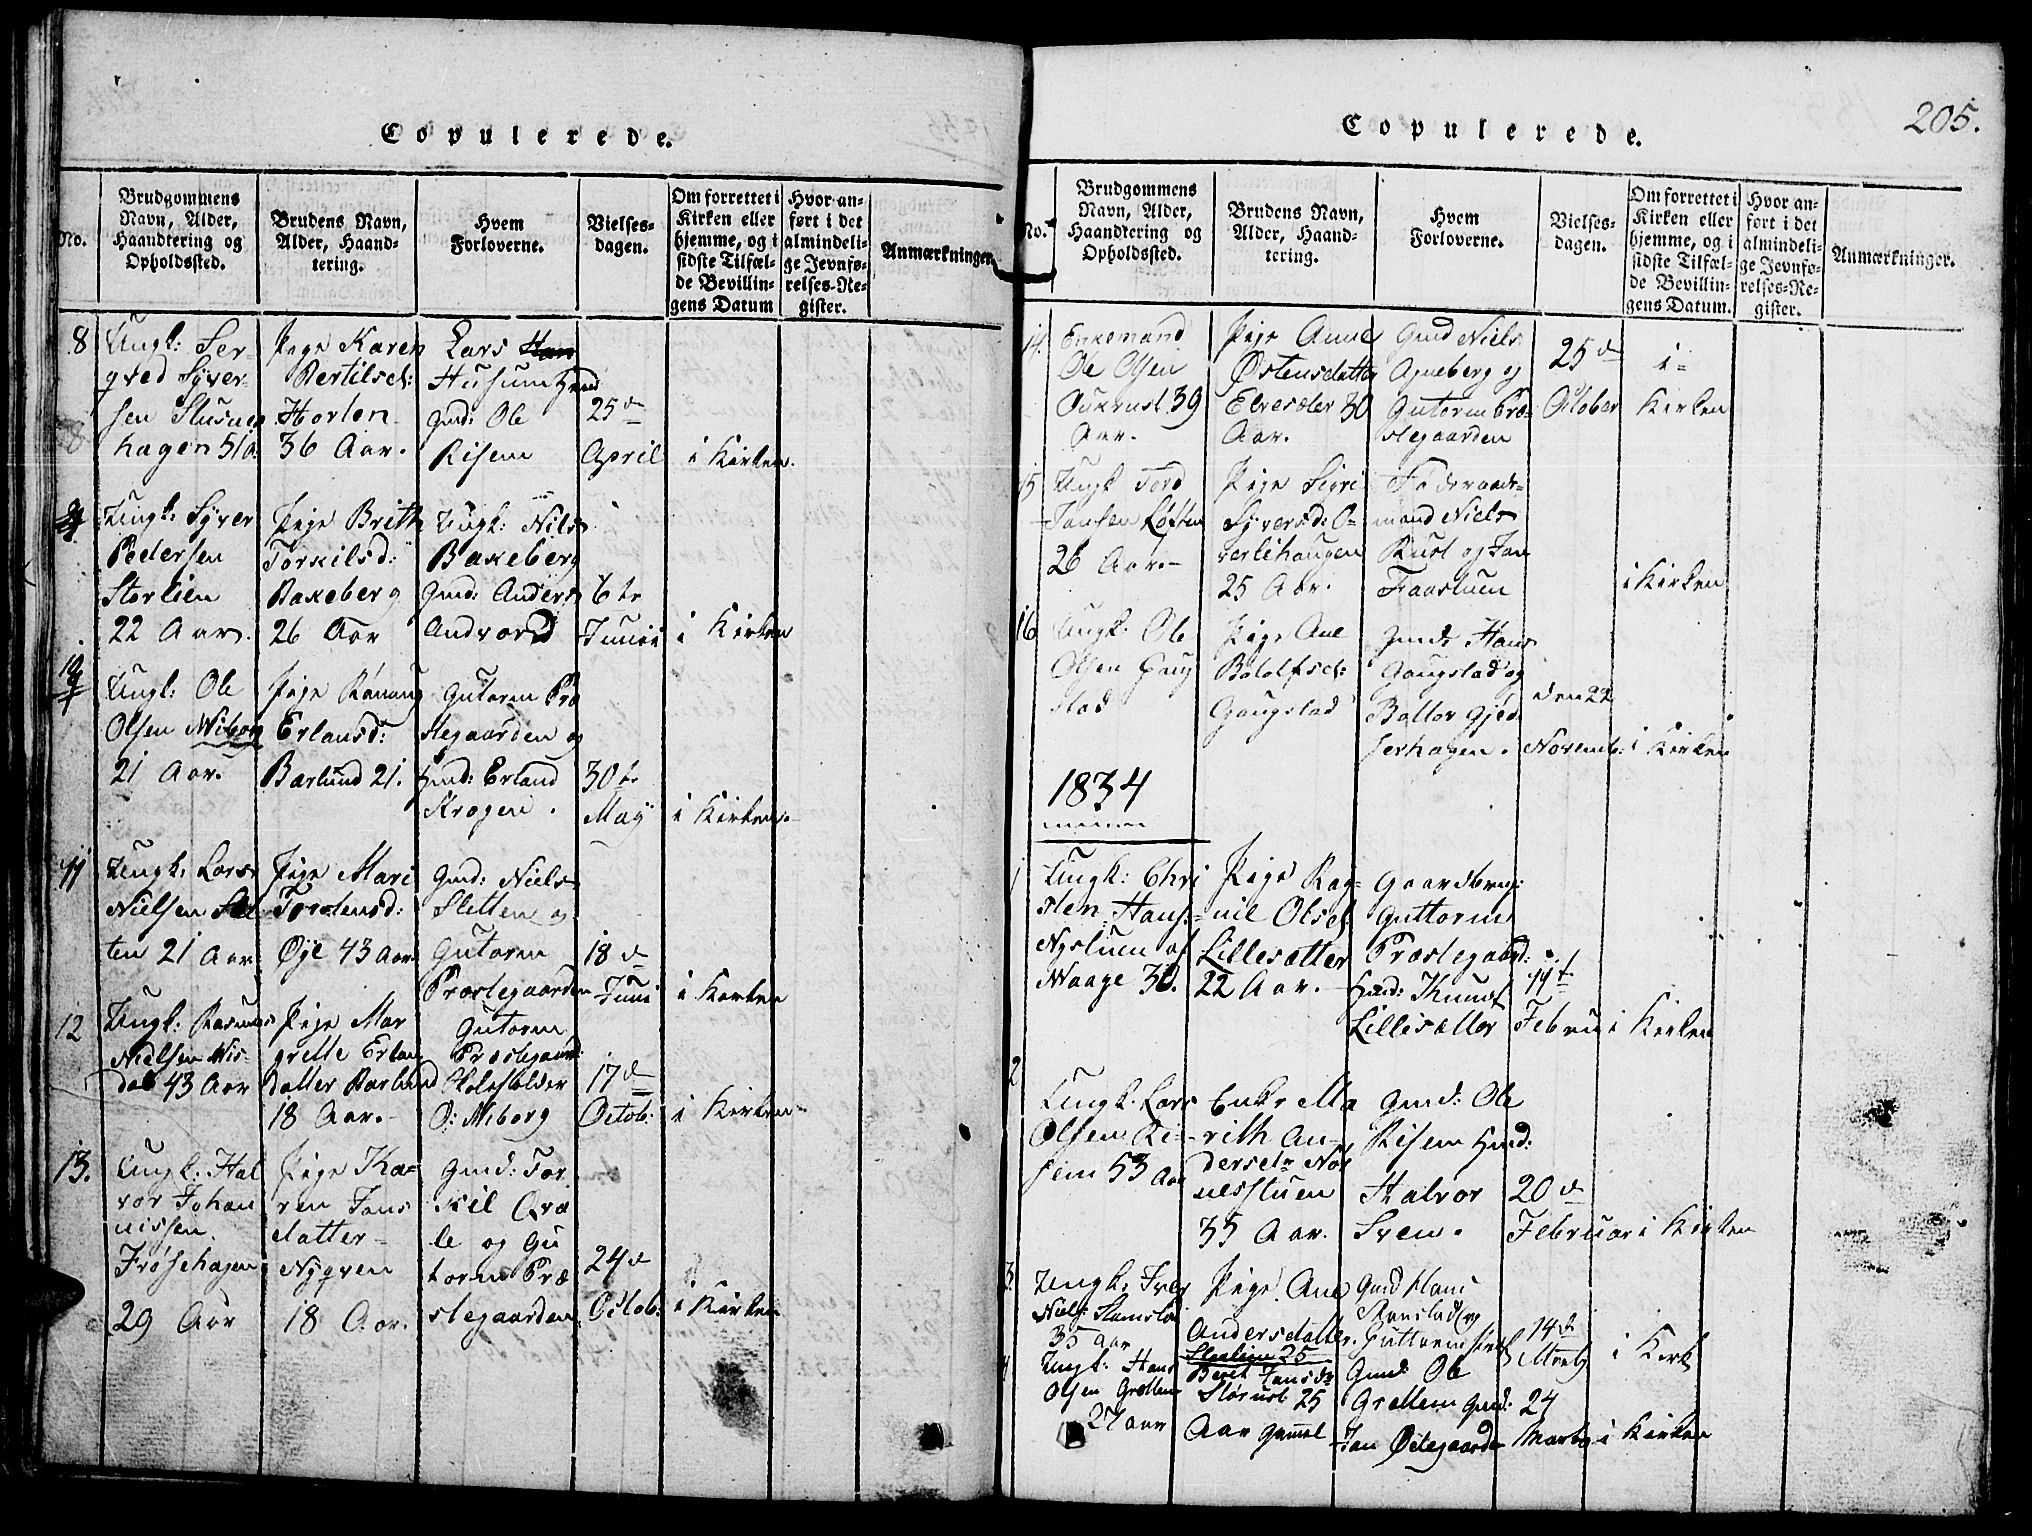 Copulerede.
No.
Brudgommens
Navn, Alder,
Haandtering og
Opholdssted.
Brudens Navn,
Alder, Haand-
tering.
Hvem
Forloverne.
Vielses-
dagen.
Om forrettet i
Kirken eller
hjemme, og i
sidste Tilfæl-
de Bevillin-
gens Datum
Hvor an-
ført i det
almindeli-
ge Jevnfø-
relses-Re-
gister.
Anmærkninger.
8
Ungk: Ser-
qved Syver-
sen
hagen 51 a.
Pige Karen
Bertilsd:
Horlon
36 Aar.
Lars
Husum Hmd
Gmd: Ole
Risem
25 d
April
i Kirken.
Ungk: Syver
Pedersen
Storlien
22 Aar.
Pige Brith
Torkilsd:
Bakeberg
26 Aar
Ungk: Nils
Bakeberg
Gmd: Anders
Andvord
6te
Junii
i Kirken
10
Ungk: Ole
Olsen Wiborg
21 Aar.
Pige Rønnug
Erlansd:
Barlund 21.
Gutorm Præ
stegaarden og
Hmd: Erland
Krogen.
30te
May
i Kirken.
11
Ungk: Lars
Nielsen Slet
ten 21 Aar
Pige Mari
Torstensd:
Øye 43 Aar.
Gmd: Niels
Sletten og
Gutorm
Præstegaarden
18 d
Juni
i Kirken
12
Ungk: Rasmus
Nielsen Vis-
dal 43 Aar
Pige Mar
grette Erlan
Datter Barlund
18 Aar.
Gutorm
Præstegaard:
Skoleholder
O: Wiborg
17 d
Octob:
i Kirken
13.
Ungk: Hal
vor Johan
nissen
Frøsehagen
29 Aar
Pige Ka-
ren Jans
datter
Nyqven
18 Aar.
Gmd: Tor
kil Qvæ
le og Gu
torm Præ
stegaarden
24 d
Octob:
i Kirken
205.
Copulerede.
No.
Brudgommens
Navn, Alder,
Haandtering og
Opholdssted.
Brudens Navn,
Alder, Haand-
tering.
Hvem
Forloverne.
Vielses-
dagen.
Om forrettet i
Kirken eller
hjemme, og i
sidste Tilfæl-
de Bevillin-
gens Datum.
Hvor an-
ført i det
almindeli-
ge Jevnfø-
relses-Re-
gister.
Anmærkninger.
14.
Enkemand
Ole Olsen
Aukrust 39
Aar.
Pige Anne
Østensdatter
Elvesæter 30
Aar.
Gmd Niels
Agneberg og
Gutorm Præ-
stegaarden
25 d
October
i
Kirken
15
Ungk Tord
Jansen Løften
26 Aar.
Pige Sigri
Syversd: O-
verlihaugen
25 Aar.
Føderaads-
mand Niels
Rust og Jan
Faastuen
i Kirken
16
Ungk: Ole
Olsen Gaug
stad
Pige Ane
Botolfsd:
Gaugstad
Gmd: Hans
Gaugstad og
Gjed
serhagen.
den 22
Novemb:
i Kirken
1834
1
Ungk: Chri
sten Hans:
Nystuen af
Waage 30.
Pige Rag-
nil Olsd:
Lillesætter
22 Aar.
Gaardbrug:
Guttorm
Præstegaard:
Hmd: Knud
Lillesætter
11t
Febru
i Kirken
2
Ungk: Lars
Olsen Ri-
sem 53 Aar
Enke Ma
rith An-
dersdr Nør
nesstuen
35 Aar.
Gmd: Ole
Risem Hmd:
Halvor
Svem.
20 d
Februar
i Kirken
3.
Ungk: Iver
Niels:
35 Aar
Pige Ane
Andersdatter
25
Gmd Hans
14de
Martz
i Kirk
4
Ungk: Hans
Olsen Grettem
27 aar
Beret Jansdr
Størust 25
Aar gammel
Gmd: Ole
Grettem Gmd:
Jan Ødegaarden
24
Martz
i Kirken